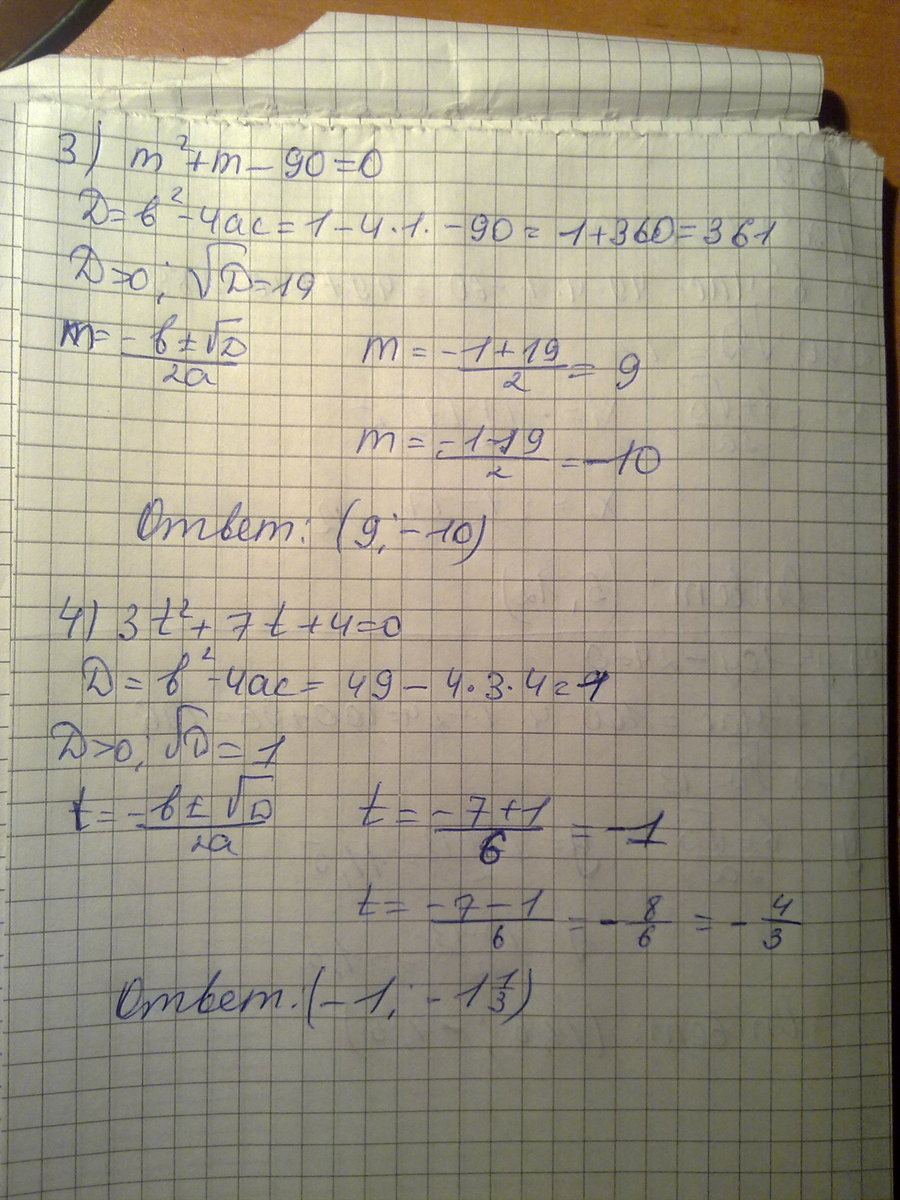 3) m²+m-90=0
D=b²-4ac=1-4·1·-90=1+360=361
D>0; √D=19
m=-b±√D/2a m=-1+19/2=9
m=-1-19/2=-10
Ответ: (9;-10)
4) 3t²+7t+4=0
D=b²-4ac=49-4·3·4=1
D>0; √D=1
t=-b±√D/2a t=-7+1/6=-1
t=-7-1/6=-8/6=-4/3
Ответ: (-1; -1 1/3)